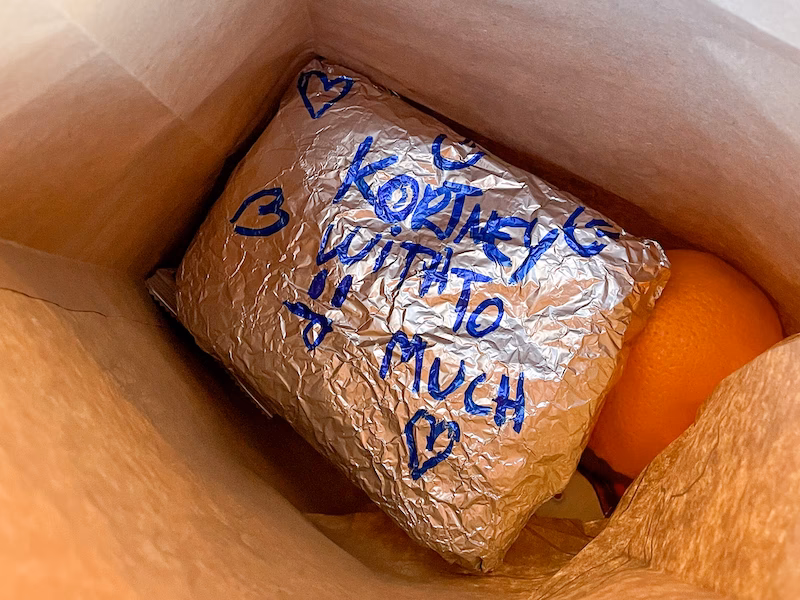 KORTNEY
WITH TO
MUCH